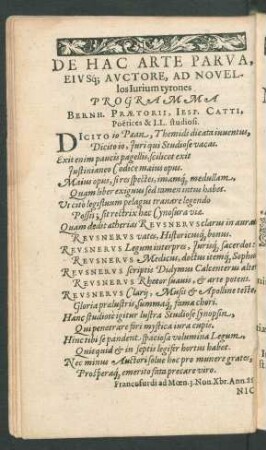 DE HAC ARTE PARVA,
EIVSq; AVCTORE, AD NOVEL-
los Iurium tyrones
PROGRAMMA
BERNH. PRÆTORII, IESP. CATTI,
Poëtices & LL. studiosi.
DICITO io Pæan, Themidi dicata iuventus,
Dicito io, Juri qui Studiose vacas.
Exit enim paucis pagellis, scilicet exit
Justinianeo Codice maius opus.
Maius opus, si res spectes, imamq; medullam,
Quam liber exiguus sed tamen intus habet.
Ut cito legistuum pelagus tranare legendo
Possis; sit rectrix hæc Cynosura viæ.
Quam dedit ætherias REVSNERVS clarus in auras
REVSNERVS vates, Historicusq; bonus.
REVSNERVS Legum interpres, Jurisq; sacerdos:
REVSNERVS Medicus, doctus itemq; Sophus
REVSNERVS scriptis Didymus Calcenterus alter
REVSNERVS Rhetor suavis, & arte potens.
REVSNERVS Clarÿ, Musis & Apolline tecto
Gloria prælustris, summaq; fama chori.
Hanc studiose igitur lustra Studiose synopsin,
Qui penetrare siri mystica iura cupis.
Hinc tibi se pandent spatiosa volumina Legum,
Quicquid & in septis legifer hortus habet.
Nec minus Auctori solve hoc pro munere grates,
Prosperaq; emerito fata precare viro.
Francofurdi ad Mœn. 3. Non. Xbr. Ann.
NIC